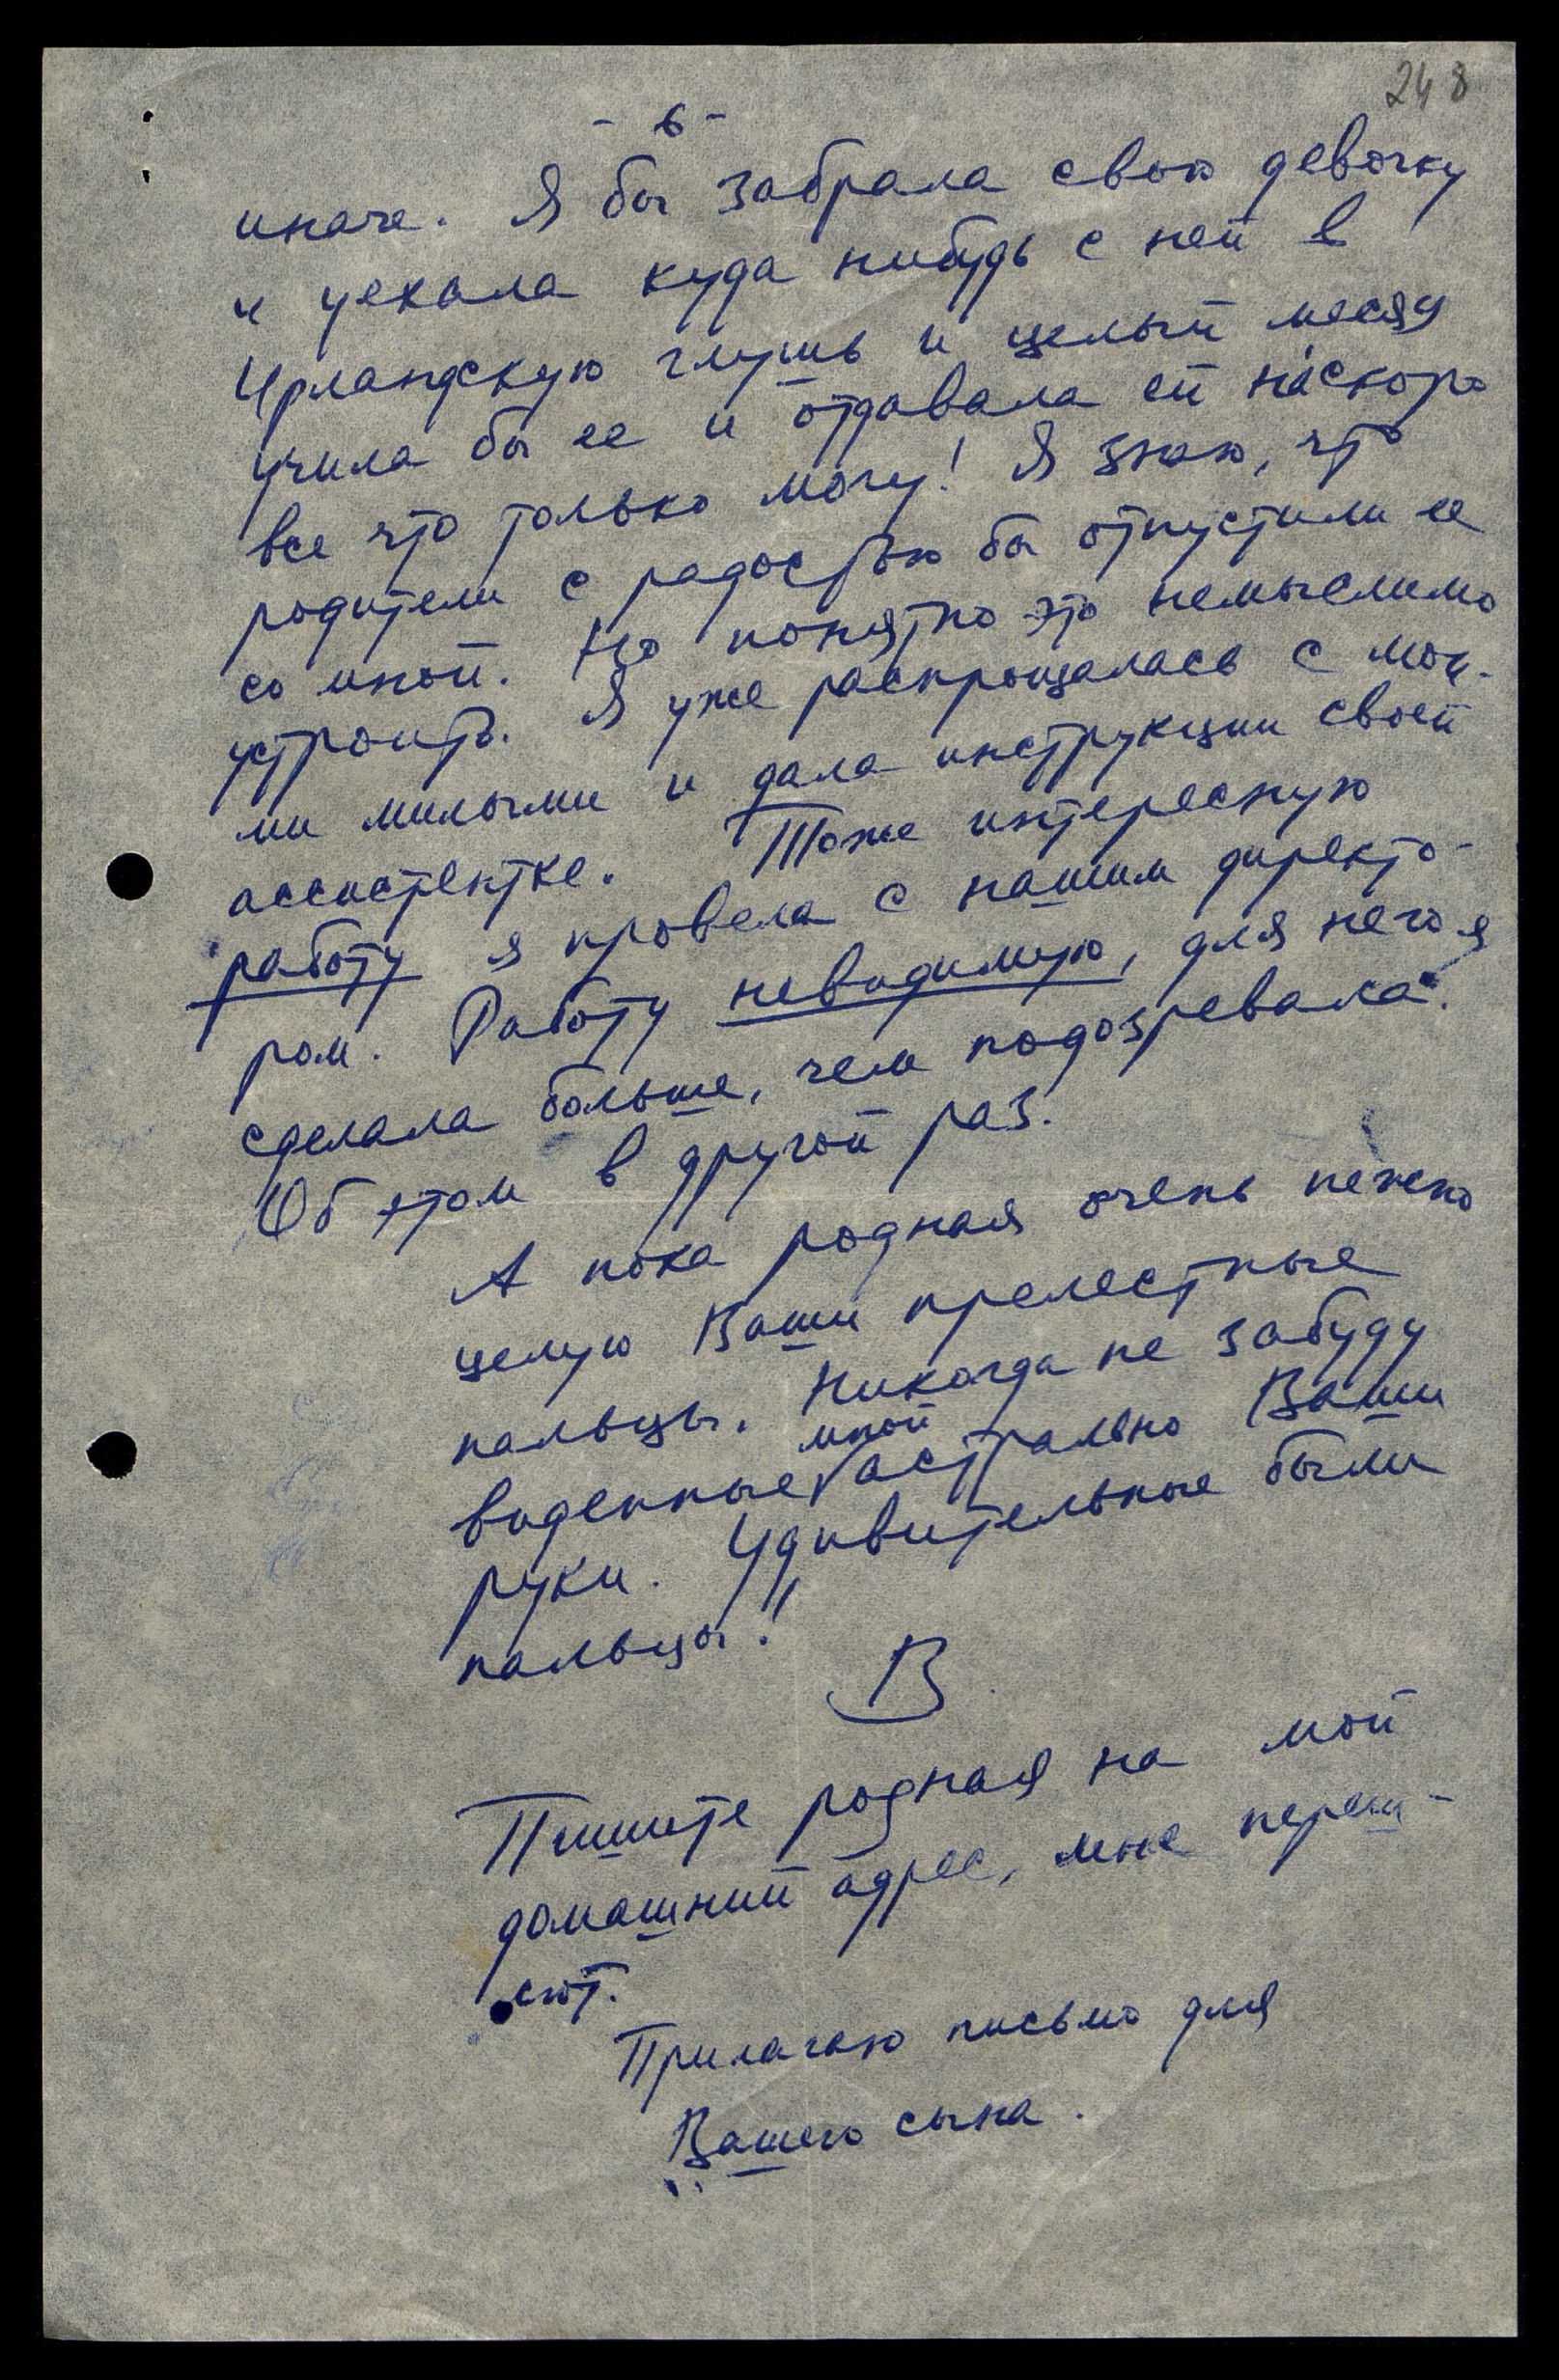 248
- 6 -
иначе. Я бы забрала свою девочку
и уехала куда нибудь с ней в
Ирландскую глушь и целый месяц
учила бы ее и отдавала ей на́скоро
все что только могу! Я знаю, что
родители с радостью бы отпустили ее
со мной. Но понятно это немыслимо
устроить. Я уже распрощалась с мои-
ми милыми и дала инструкции своей
ассистентке. Тоже интересную
работу я провела с нашим директо-
ром. Работу невидимую, для него я
сделала больше, чем подозревала.
Об этом в другой раз.
А пока родная очень нежно
целую Ваши прелестные
пальцы. Никогда не забуду
виденные мной астрально Ваши
руки. Удивительные были
пальцы!
В.
Пишите родная на мой
домашний адрес, мне переш-
лют.
Прилагаю письмо для
Вашего сына.